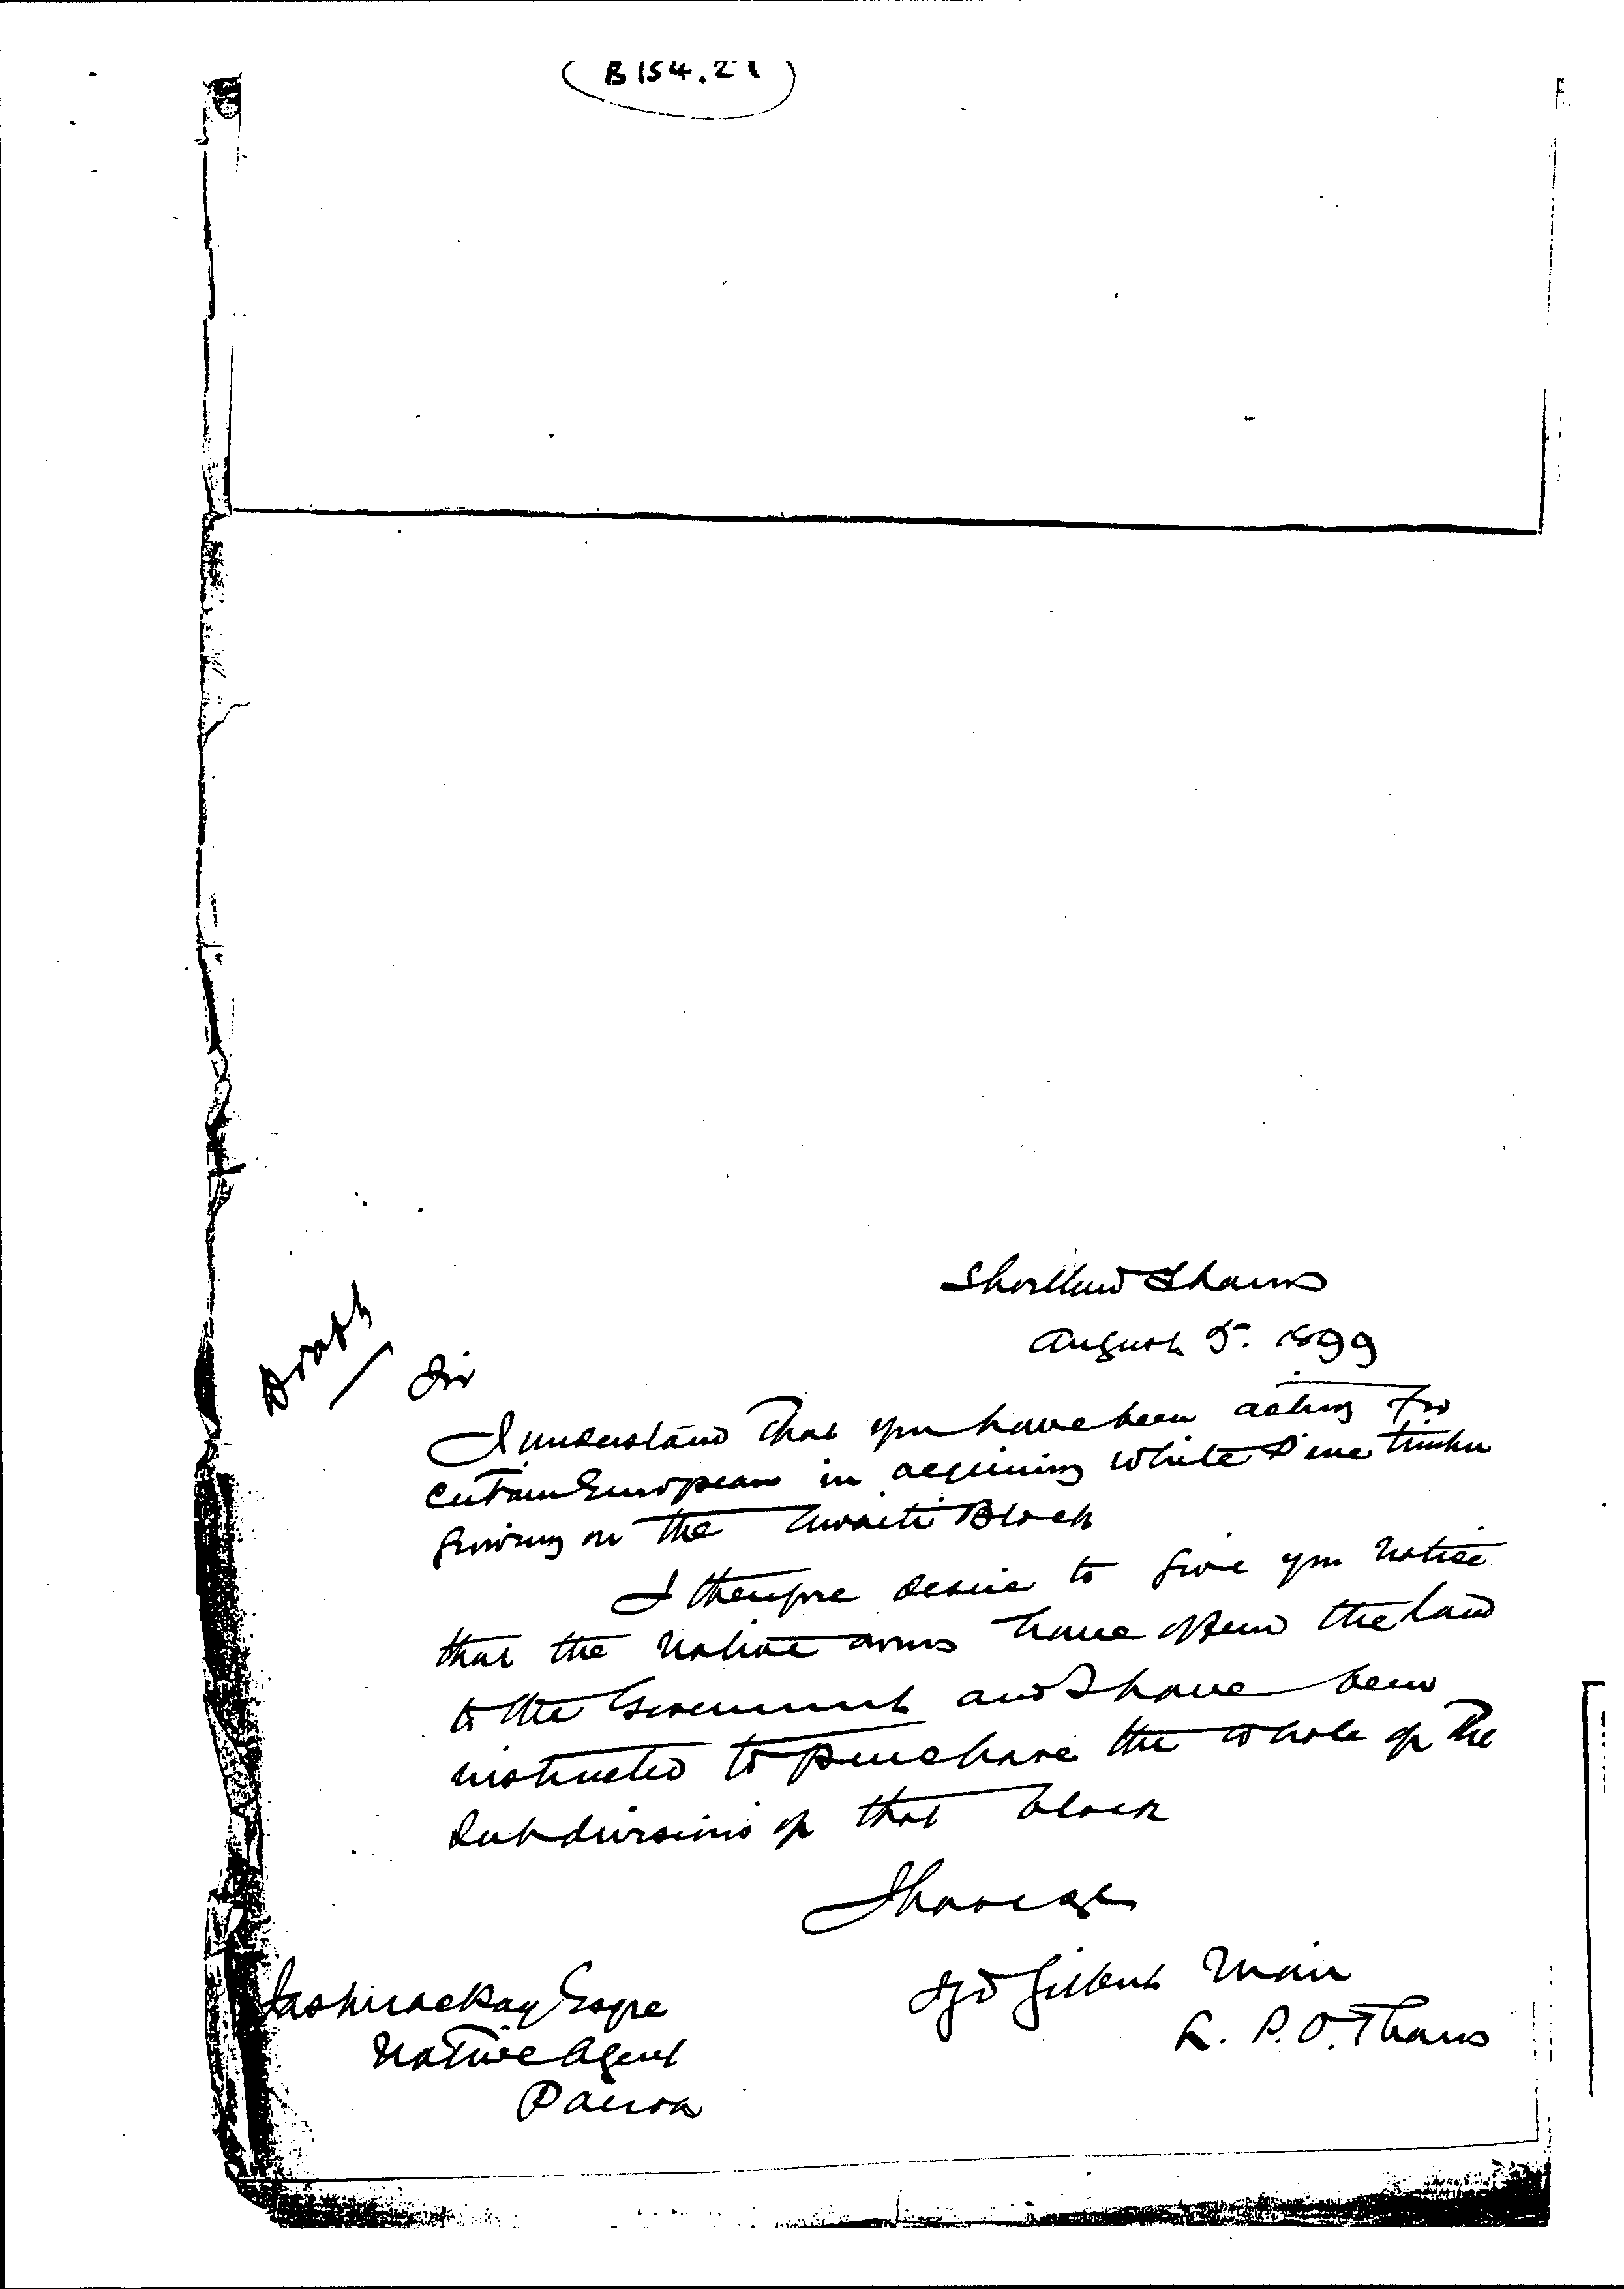 B 154.21
Shortland Thames
August 5. 1899
Draft
Sir
I understand that you have been acting for
certain Europeans in acquiring White Pine timber
growing on the Awaiti Block
I therefore desire to give you notice
that the native owners have offered the land
to the Government and I have been
instructed to purchase the whole of the
Subdivisions of that block
I have &c
Sgd Gilbert Mair
L. P. O. Thames
Jas Mackay Esqre
Native Agent
Paeroa